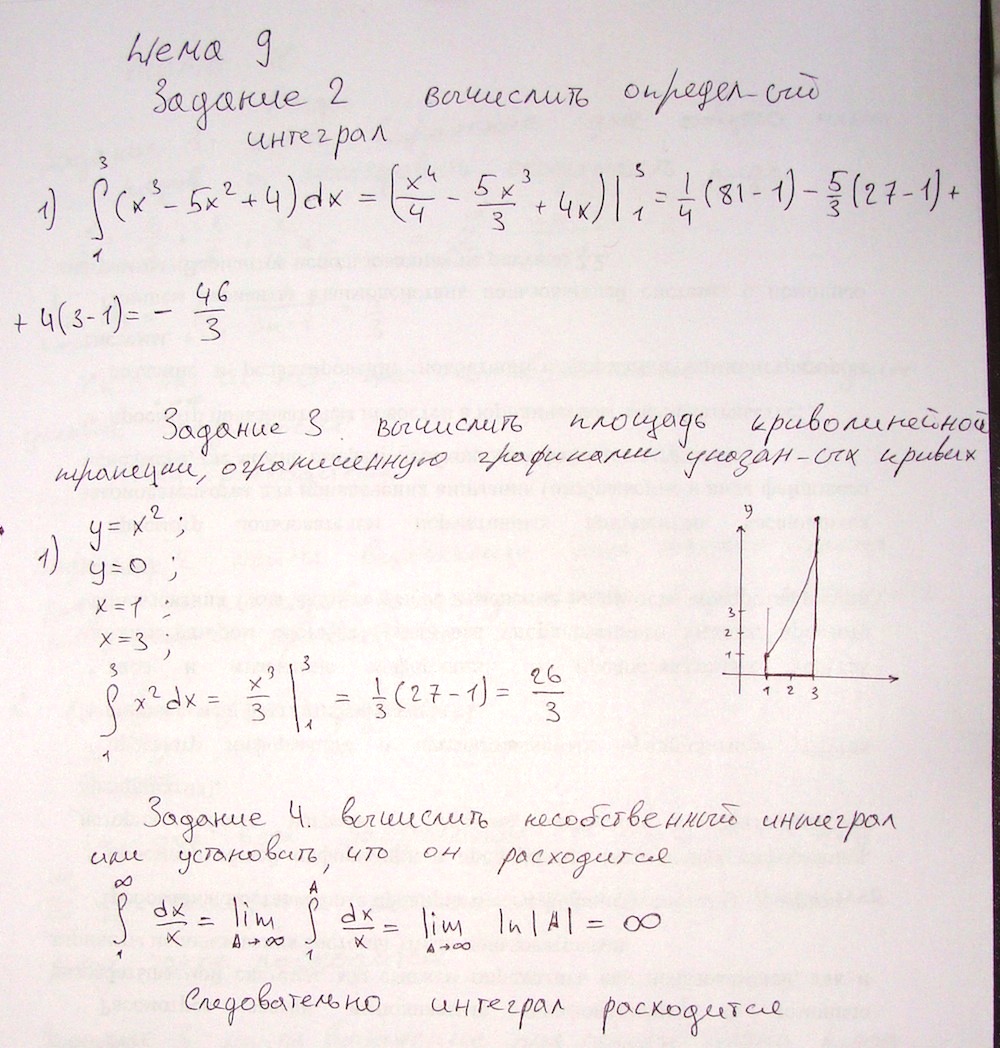 Тема 9
Задание 2 вычислить определ-ый
интеграл
1) ∫₁³ (x³ - 5x² + 4) dx = (x⁴/4 - 5x³/3 + 4x) |₁³ = 1/4 (81 - 1) - 5/3 (27 - 1) +
+ 4(3 - 1) = - 46/3
Задание 3. вычислить площадь криволинейной
трапеции, ограниченную графиками указан-ых кривых
1) y = x² ;
y = 0 ;
x = 1 ;
x = 3 ;
y
3
2
1
1 2 3
∫₁³ x² dx = x³/3 |₁³ = 1/3 (27 - 1) = 26/3
Задание 4. вычислить несобственный интеграл
или установить, что он расходится
∫₁^∞ dx/x = lim A→∞ ∫₁^A dx/x = lim A→∞ ln|A| = ∞
Следовательно интеграл расходится